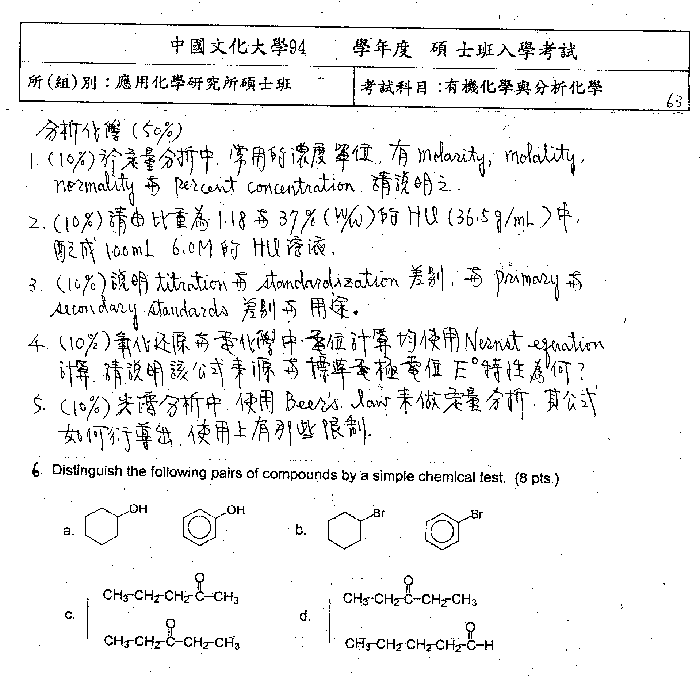 中國文化大學94 學年度 碩士班入學考試
所(組)別：應用化學研究所碩士班 考試科目：有機化學與分析化學
63
分析化學 (50%)
1. (10%) 於定量分析中，常用的濃度單位，有 molarity, molality,
normality 與 percent concentration，請說明之.
2. (10%) 請由比重為 1.18 與 37% (W/W) 的 HCl (36.5g/mL) 中，
配成 100mL 6.0M 的 HCl 溶液.
3. (10%) 說明 titration 與 standardization 差別，與 primary 與
secondary standards 差別與用途。
4. (10%) 氧化还原與電化學中，電位計算均使用 Nernst equation
計算，請說明該公式來源與標準電極電位 E° 特性為何？
5. (10%) 光譜分析中，使用 Beer's law 來做定量分析，其公式
如何衍導出，使用上有那些限制.
6. Distinguish the following pairs of compounds by a simple chemical test. (8 pts.)
a. OH OH b. Br Br
c. CH3-CH2-CH2-C-CH3 O
CH3-CH2-C-CH2-CH3 O
d. CH3-CH2-C-CH2-CH3 O
CH3-CH2-CH2-CH2-C-H O